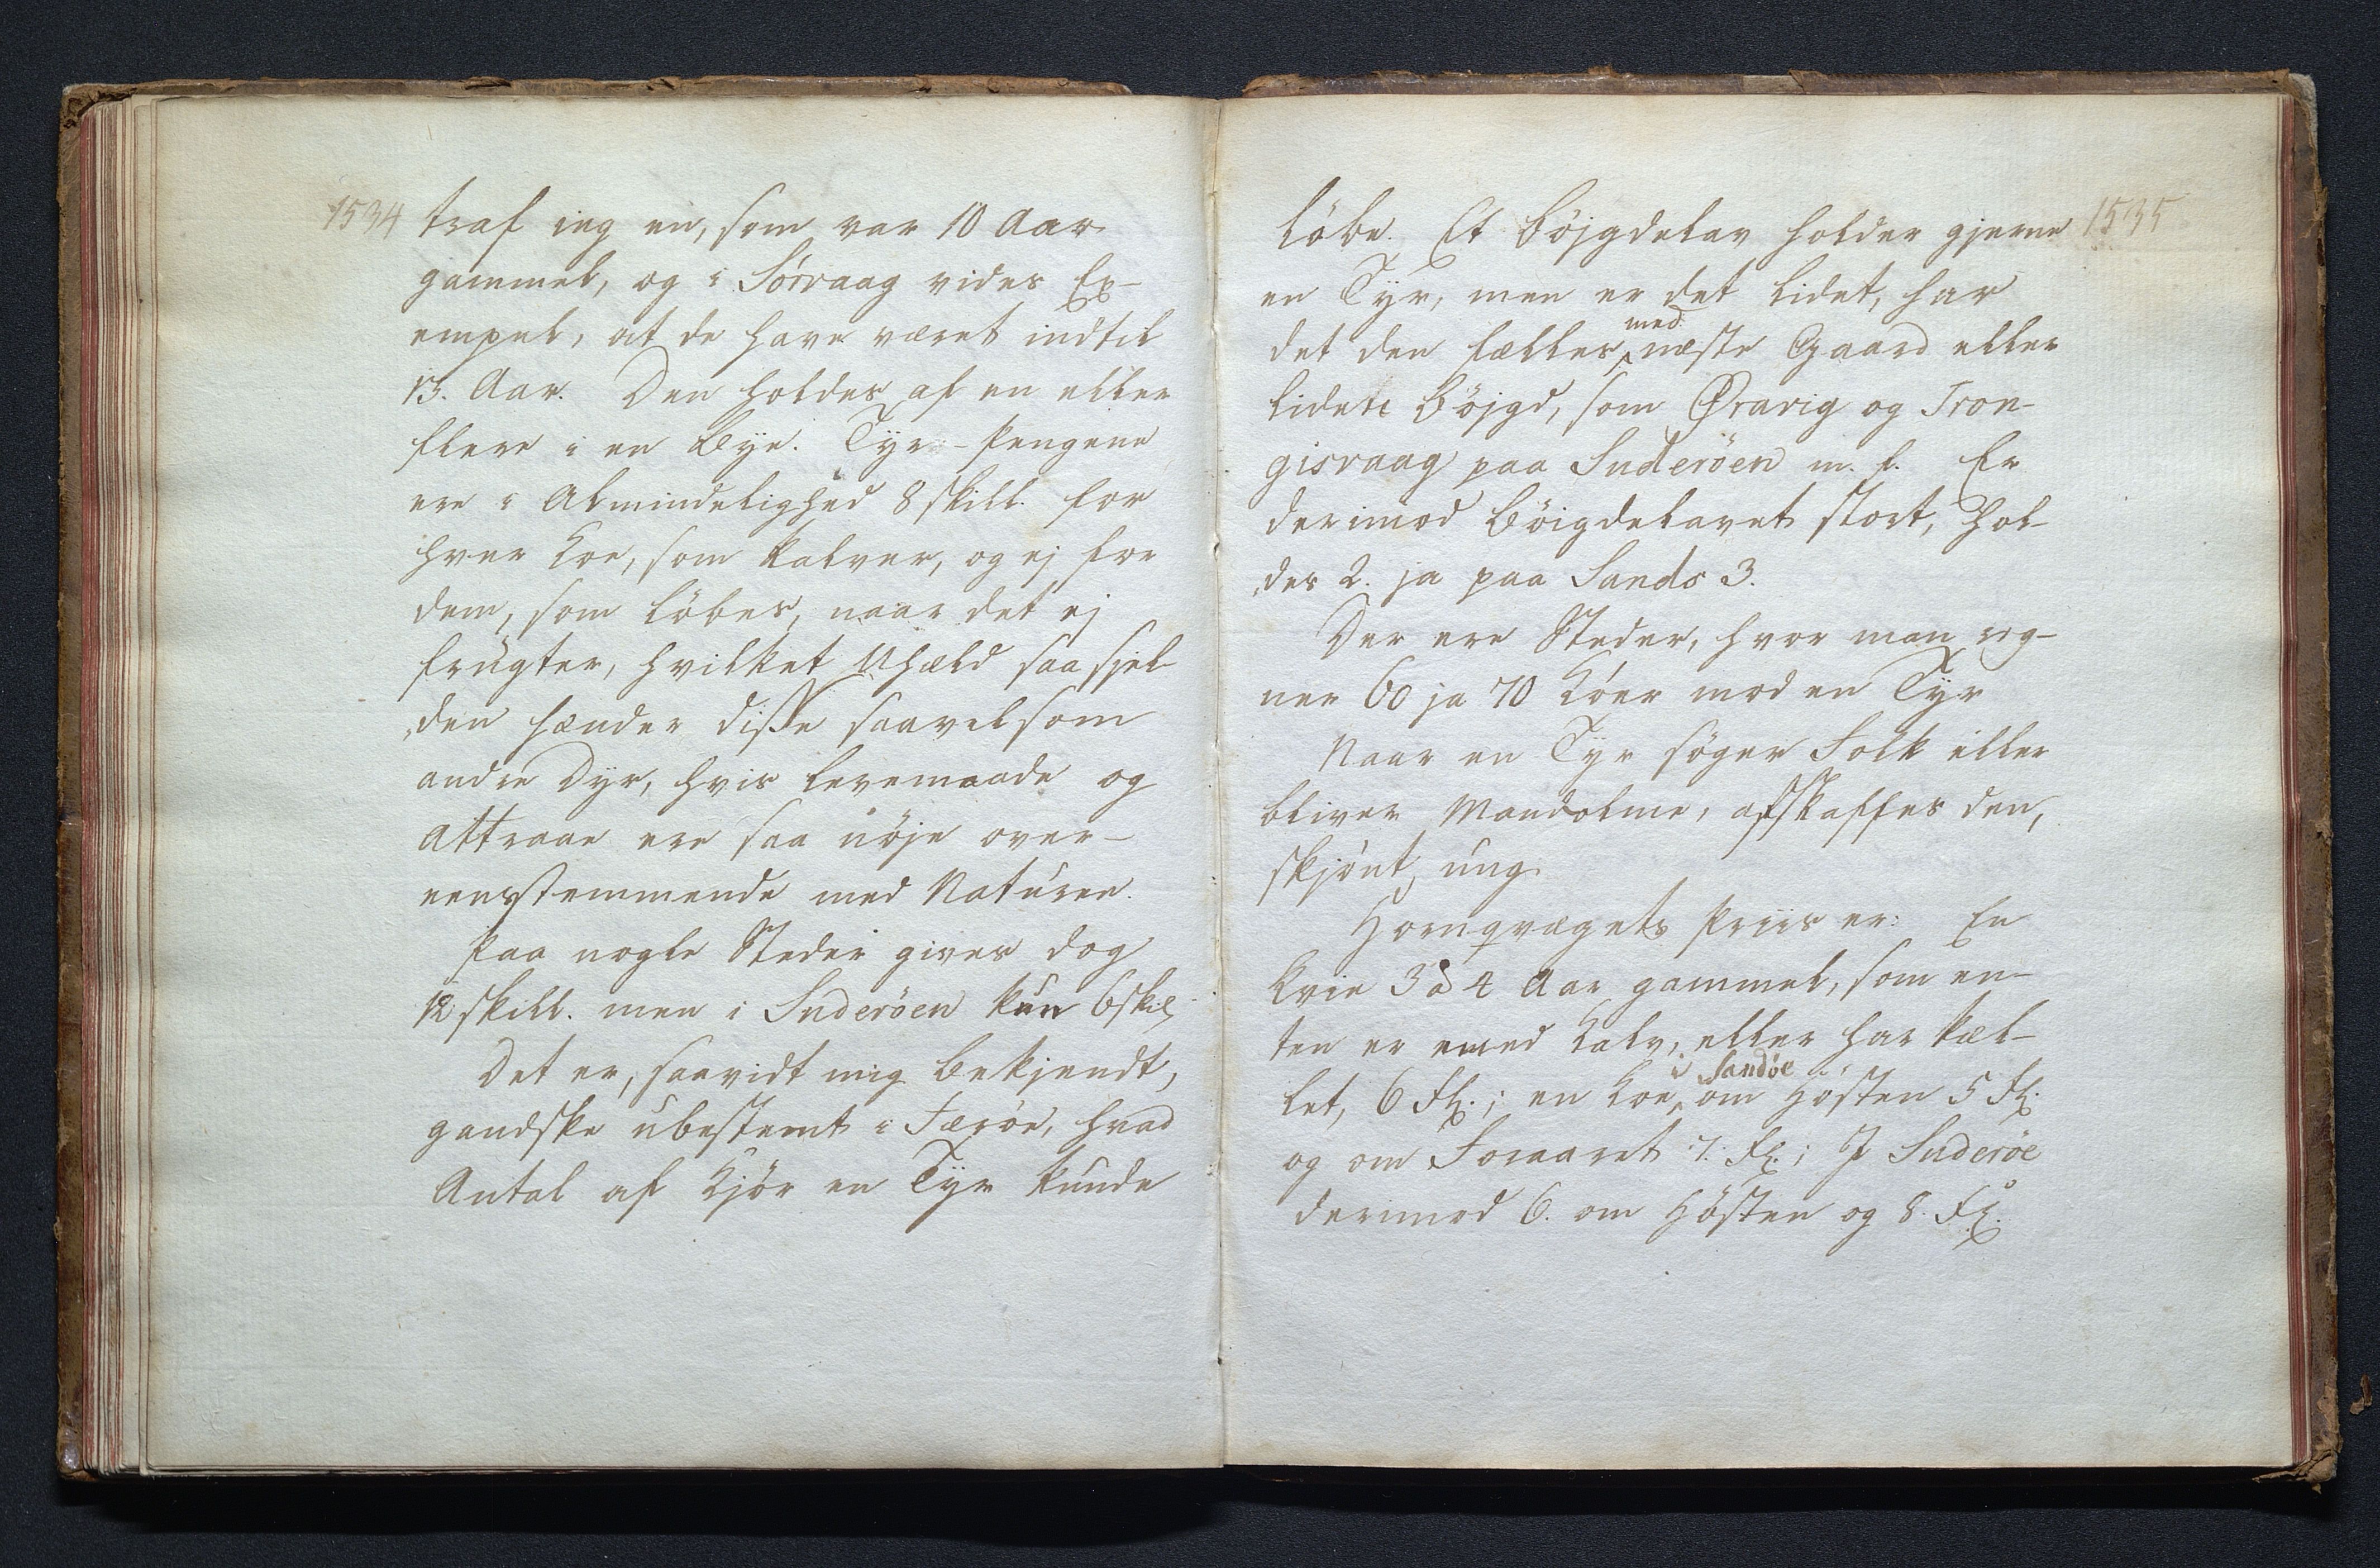 1534
traf ieg en, som var 10 Aar
gammel, og i Sörvaag vides Ex-
empel, at de have været indtil
13. Aar. Den holdes af en eller
flere i en Bye. Tyr-Pengene
ere i Almindelighed 8 skill. for
hver Koe, som kalver, og ej for
dem, som löbes, naar det ej
frugter, hvilket Uhæld saa sjel-
den hænder disse saavelsom
andre Dyr, hvis Levemaade og
Attraae ere saa nöje over-
eensstemmende med Naturen.
Paa nogle Steder gives dog
12 skill. men i Suderöen kun 6 skil.
Det er, saavidt mig bekjendt,
gandske ubestemt i Færöe, hvad
Antal af Kjör en Tyr kunde
1535
löbe. Et Böjgdelav holder gjerne
en Tyr, men er det lidet, har
det den fælles med næste Gaard eller
lidete Böjgd, som Øravig og Tron-
gisvaag paa Suderöen m. f. Er
derimod Böigdelavet stort, hol-
des 2. ja paa Sands 3.
Der ere Steder, hvor man reg-
ner 60 ja 70 Köer mod en Tyr
Naar en Tyr söger Folk eller
bliver Mandolme, afskaffes den,
skjönt ung.
Hornqvægets Priis er: En
Kvie 3 à 4 Aar gammel, som en-
ten er med Kalv, eller har kæl-
let, 6 Fl.; en Koe i Sandöe om Hösten 5 Fl.
og om Foraaret 7. Fl.; I Suderöe
derimod 6. om Hösten og 8. Fl.